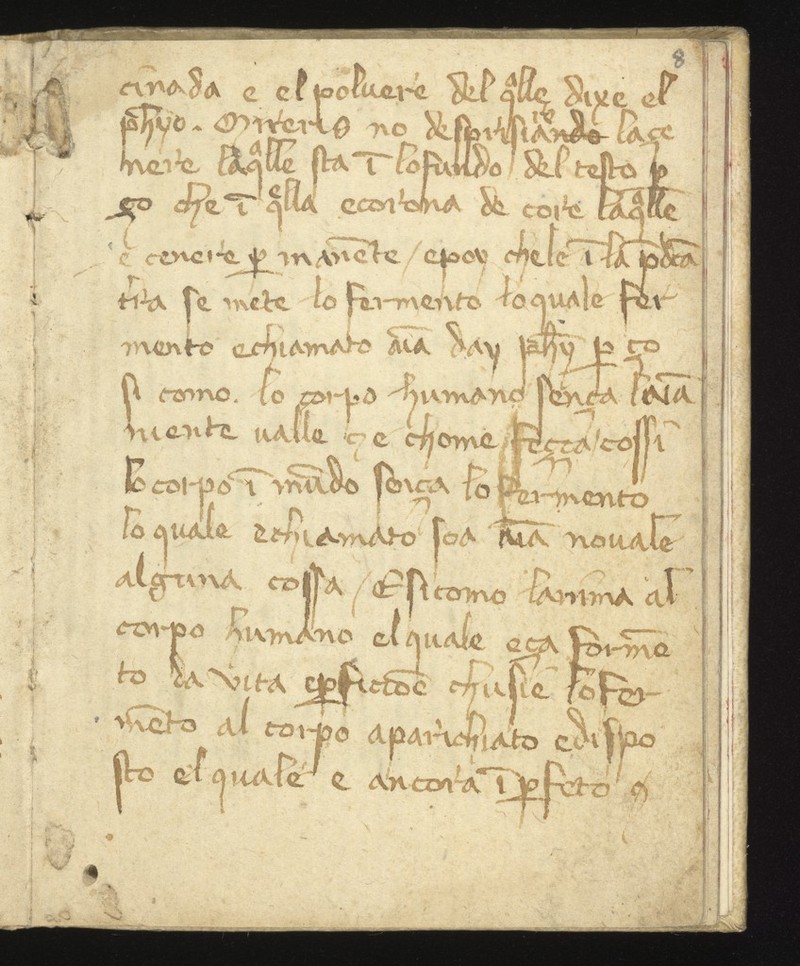 8
cinada e el poluere del q̃lle dixe el
ph̃yo. Mireris no desprisiare lace
nere laq̃lle sta ĩ lo fundo del testo p̱
ço che ĩ q̃lla e corona de core laq̃lle
e cenere p̱ manẽte / e poy che le ĩ la p̃dcã
t̃ra se mete lo fermento lo quale fer
mento e chiamato aĩa day ph̃y p̱ ço
si como. lo corpo humano sença laĩa
niente ualle e chome feçça / cossi
lo corpo ĩ mũdo sença lo fermento
lo quale e chiamato soa aĩa no uale
alguna cossa / E si como lanima al
corpo humano el quale e ça formẽ
to da vita e p̱fictiõe chusi e lo fer
mẽto al corpo aparichiato e dispo
sto el quale e ancora ĩ p̱feto